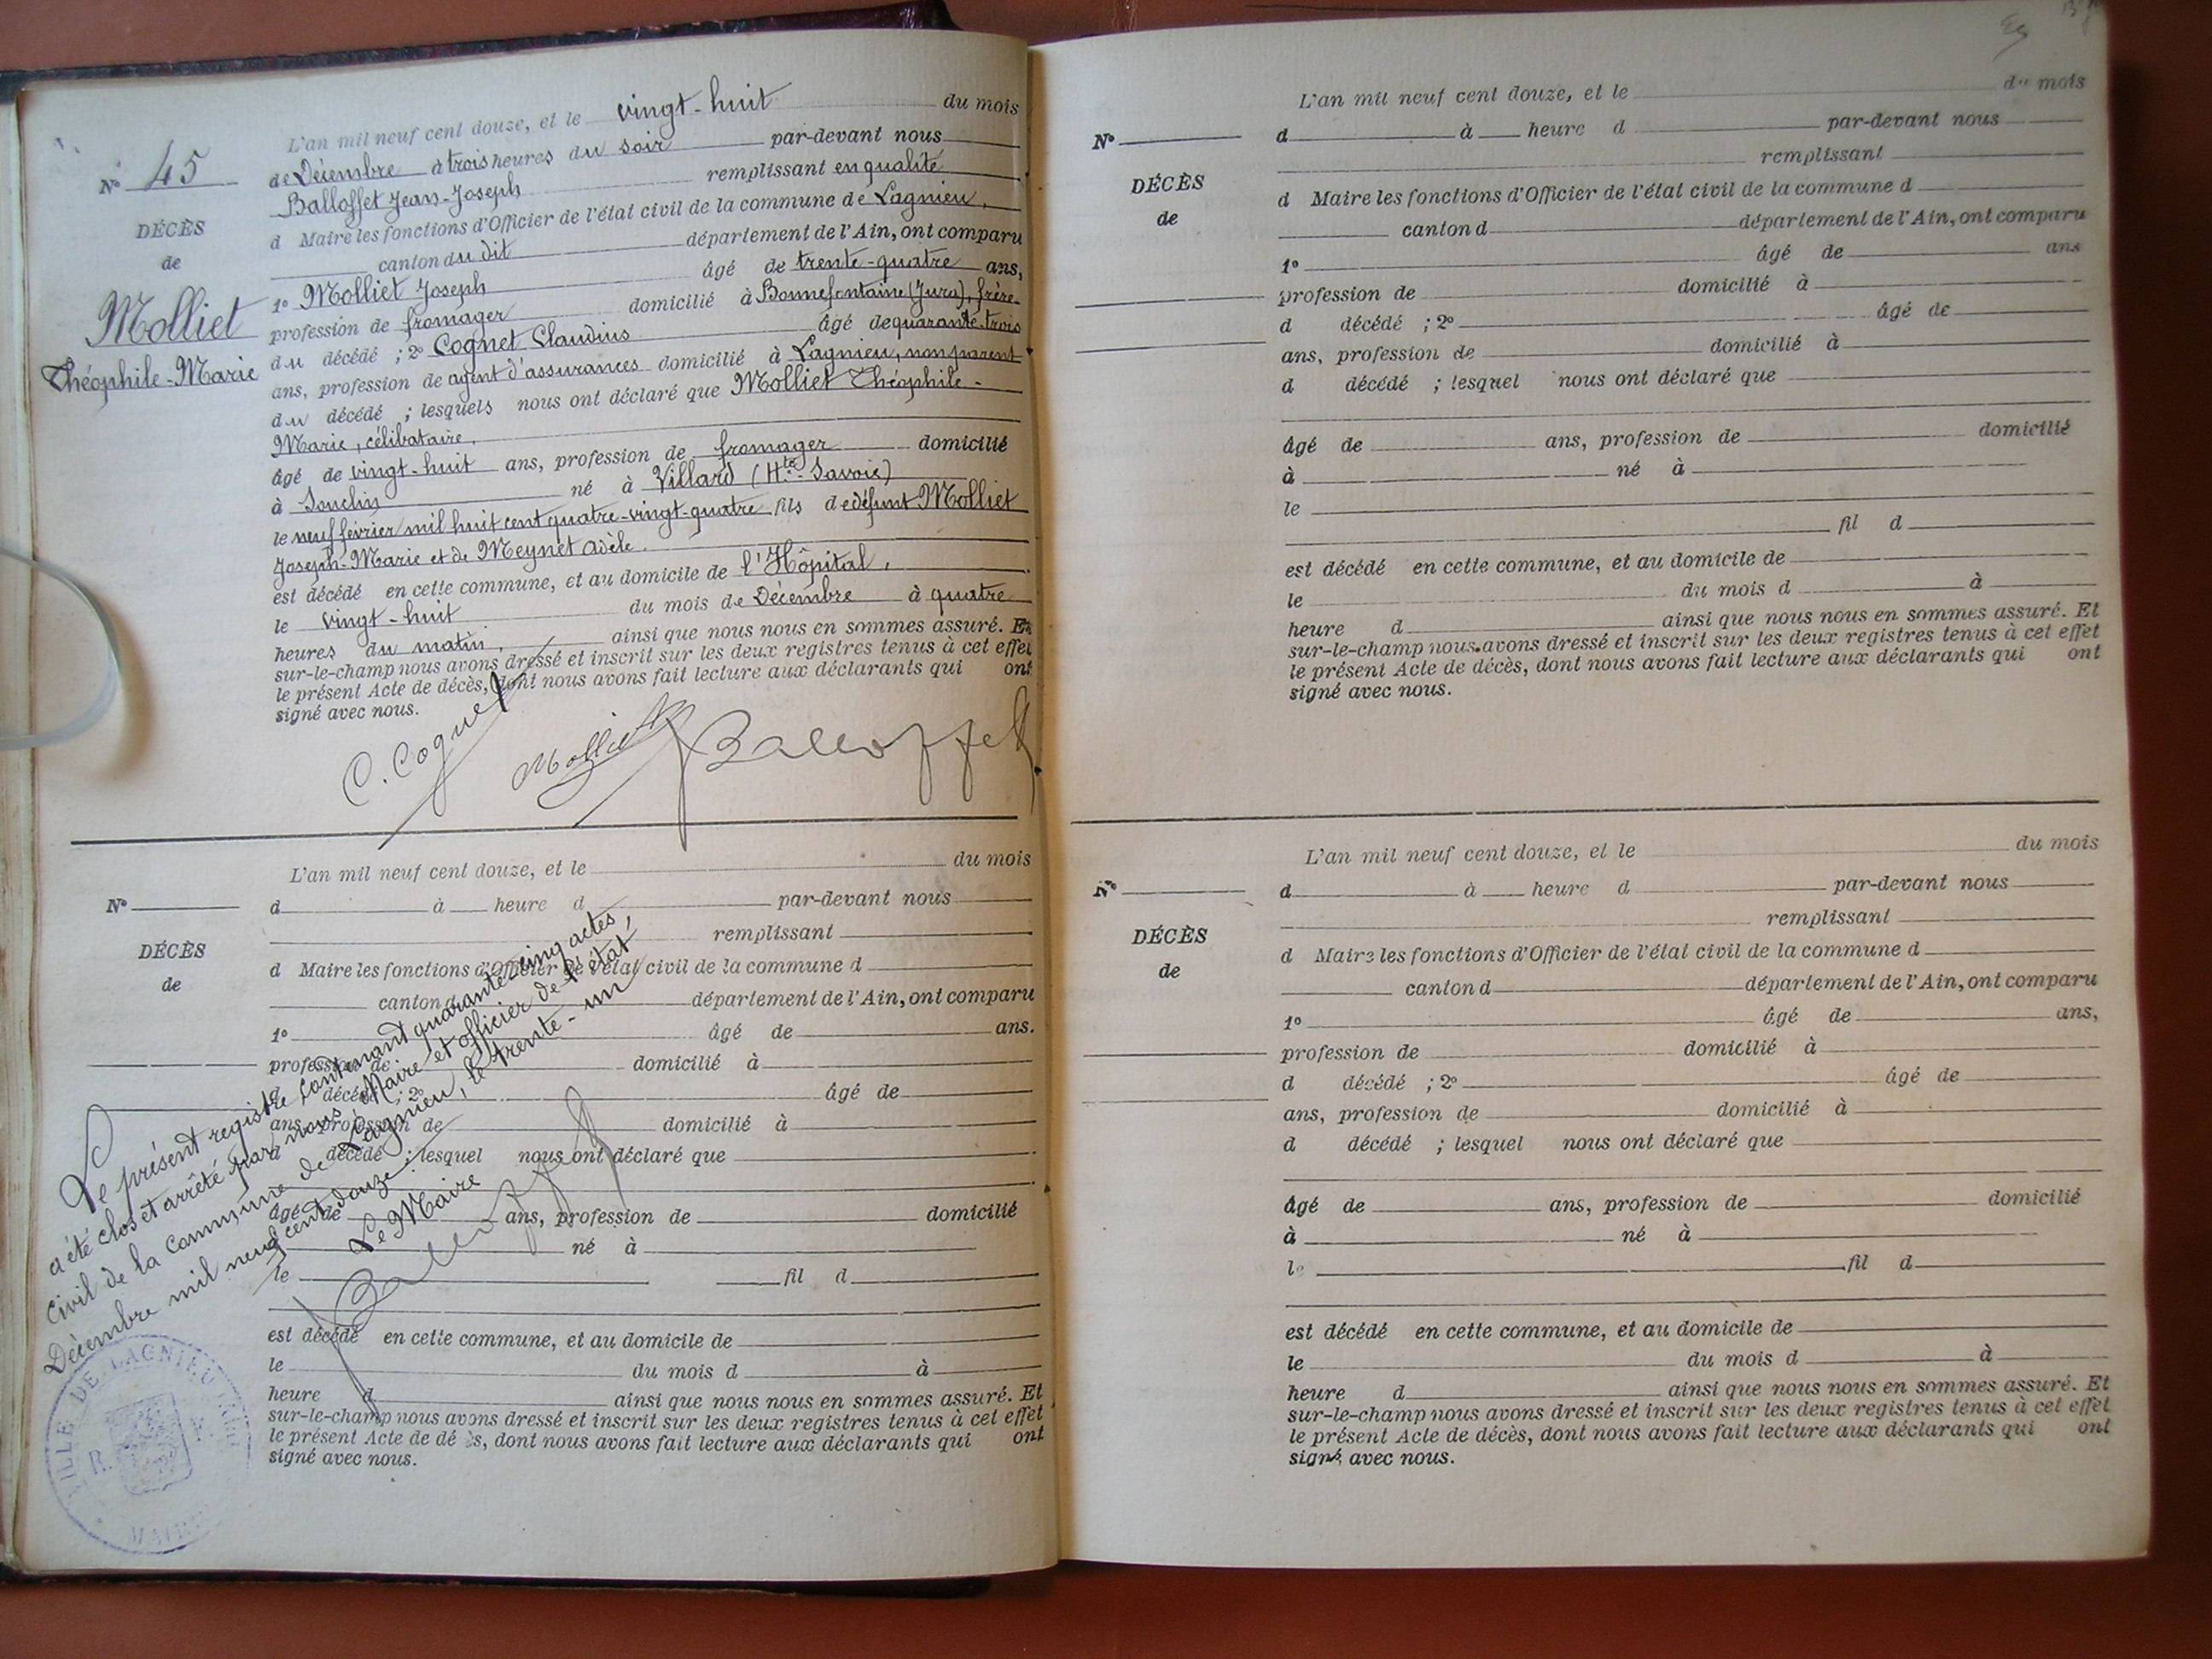 L'an mil neuf cent douze, et le vingt-huit du mois
N° 45
de Décembre à trois heures du soir par-devant nous
Balloffet Jean-Joseph remplissant en qualité
DÉCÈS
de
Molliet
Théophile-Marie
d Maire les fonctions d'Officier de l'état civil de la commune de Lagnieu,
canton du dit département de l'Ain, ont comparu
1° Molliet Joseph âgé de trente-quatre ans,
profession de fromager domicilié à Bonnefontaine (Jura), frère
du décédé ; 2° Cognet Claudius âgé de quarante-trois
ans, profession de agent d'assurances domicilié à Lagnieu, non parent
du décédé ; lesquels nous ont déclaré que Molliet Théophile-
Marie, célibataire,
âgé de vingt-huit ans, profession de fromager domicilié
à Souclin né à Villard (Hte-Savoie)
le neuf février mil huit cent quatre-vingt-quatre fils de défunt Molliet
Joseph-Marie et de Meynet Adèle
est décédé en cette commune, et au domicile de l'Hôpital,
le vingt-huit du mois de Décembre à quatre
heures du matin, ainsi que nous nous en sommes assuré. Et
sur-le-champ nous avons dressé et inscrit sur les deux registres tenus à cet effet
le présent Acte de décès, dont nous avons fait lecture aux déclarants qui ont
signé avec nous.
C. Cognet Molliet Balloffet
L'an mil neuf cent douze, et le du mois
N°
d à heure d par-devant nous
remplissant
DÉCÈS
de
d Maire les fonctions d'Officier de l'état civil de la commune d
canton d département de l'Ain, ont comparu
1° âgé de ans.
profession de domicilié à
d décédé ; 2° âgé de
ans, profession de domicilié à
d décédé ; lesquel nous ont déclaré que
âgé de ans, profession de domicilié
à né à
le fil d
est décédé en cette commune, et au domicile de
le du mois d à
heure d ainsi que nous nous en sommes assuré. Et
sur-le-champ nous avons dressé et inscrit sur les deux registres tenus à cet effet
le présent Acte de décès, dont nous avons fait lecture aux déclarants qui ont
signé avec nous.
Le présent registre contenant quarante-cinq actes,
a été clos et arrêté par nous Maire et officier de l'état
civil de la commune de Lagnieu, le trente-un
Décembre mil neuf cent douze.
Le Maire
Balloffet
VILLE DE LAGNIEU
R. F.
MAIRIE
L'an mil neuf cent douze, et le du mois
N°
d à heure d par-devant nous
remplissant
DÉCÈS
de
d Maire les fonctions d'Officier de l'état civil de la commune d
canton d département de l'Ain, ont comparu
1° âgé de ans
profession de domicilié à
d décédé ; 2° âgé de
ans, profession de domicilié à
d décédé ; lesquel nous ont déclaré que
âgé de ans, profession de domicilié
à né à
le
fil d
est décédé en cette commune, et au domicile de
le du mois d à
heure d ainsi que nous nous en sommes assuré. Et
sur-le-champ nous avons dressé et inscrit sur les deux registres tenus à cet effet
le présent Acte de décès, dont nous avons fait lecture aux déclarants qui ont
signé avec nous.
L'an mil neuf cent douze, et le du mois
N°
d à heure d par-devant nous
remplissant
DÉCÈS
de
d Maire les fonctions d'Officier de l'état civil de la commune d
canton d département de l'Ain, ont comparu
1° âgé de ans,
profession de domicilié à
d décédé ; 2° âgé de
ans, profession de domicilié à
d décédé ; lesquel nous ont déclaré que
âgé de ans, profession de domicilié
à né à
le fil d
est décédé en cette commune, et au domicile de
le du mois d à
heure d ainsi que nous nous en sommes assuré. Et
sur-le-champ nous avons dressé et inscrit sur les deux registres tenus à cet effet
le présent Acte de décès, dont nous avons fait lecture aux déclarants qui ont
signé avec nous.